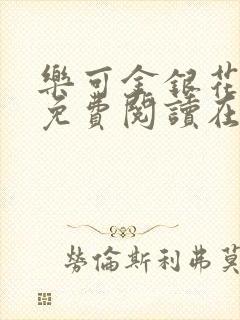 樂可金銀花
免費閱讀在
勞倫斯利弗莫